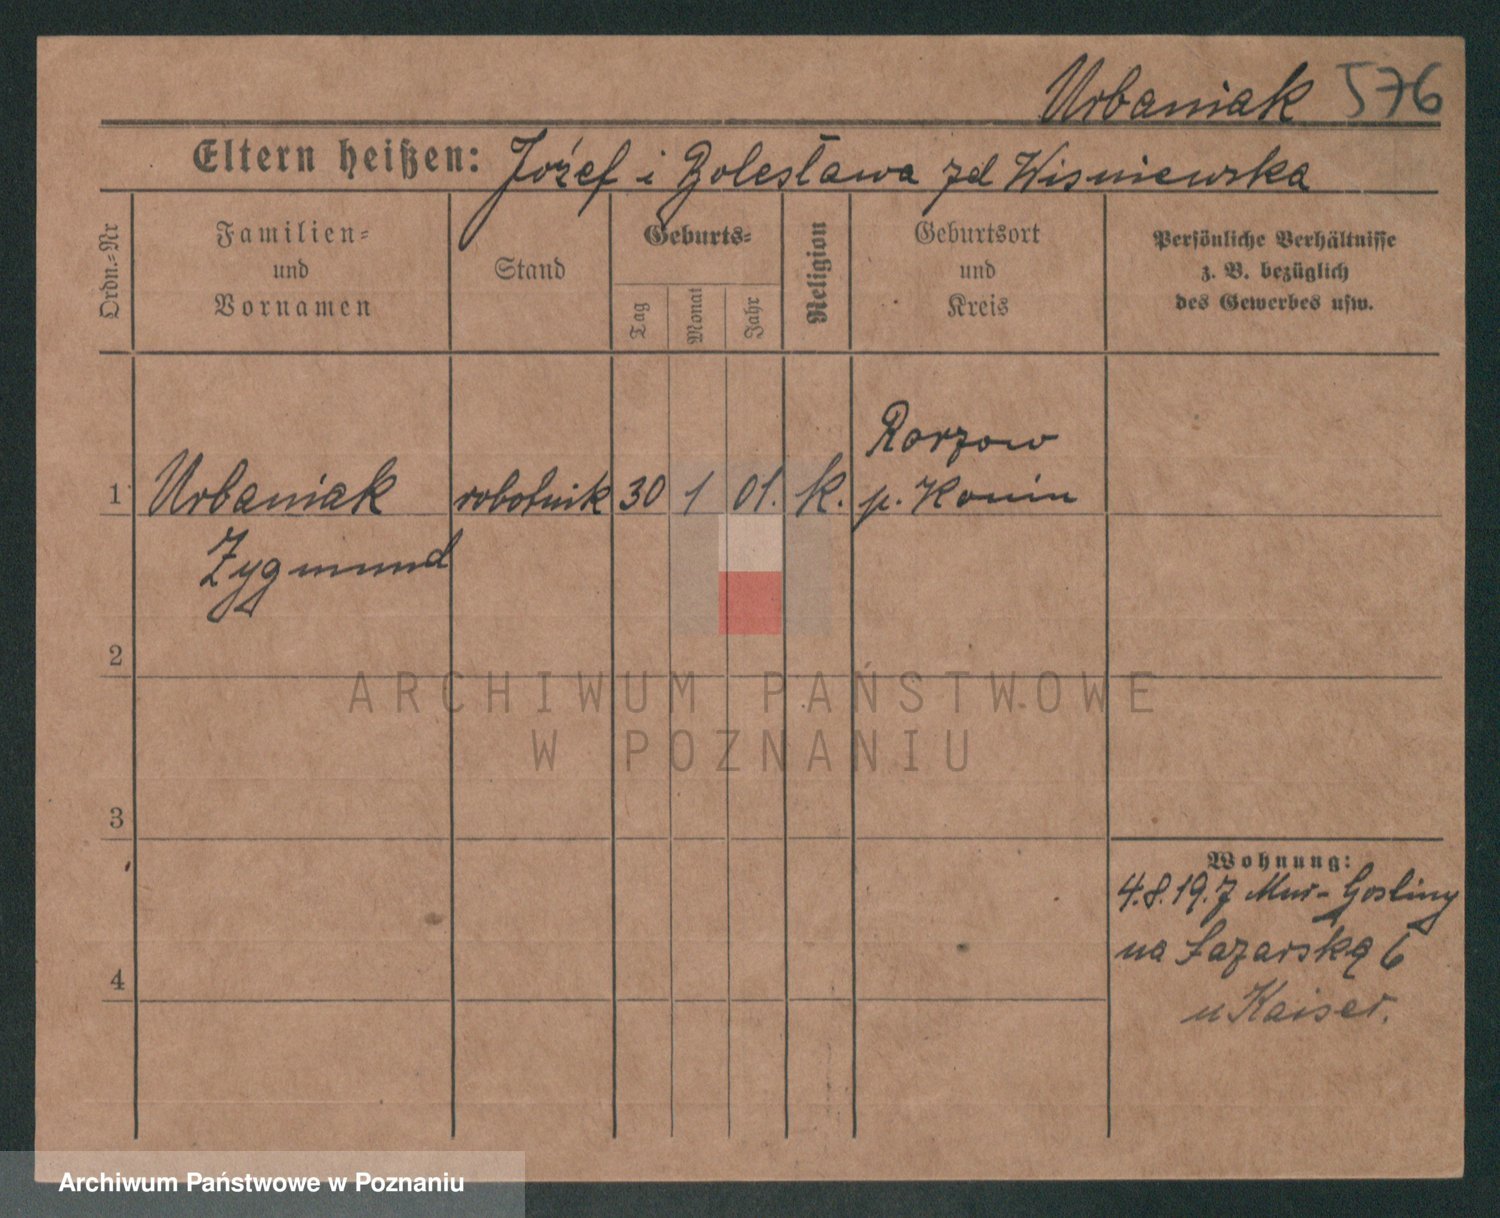 Urbaniak 576
Eltern heißen: Józef i Bolesława zd Wisniewska
Ordn.-Nr
Familien-
und
Vornamen
Stand
Geburts-
Tag
Monat
Jahr
Religion
Geburtsort
und
Kreis
Persönliche Verhältnisse
z. B. bezüglich
des Gewerbes usw.
Rorzow
1 Urbaniak robotnik 30 1 01. k. p. Konin
Zygmund
2
ARCHIWUM PAŃSTWOWE
W POZNANIU
3
Wohnung:
4.8.19.7 Mur-Gosliny
na Łazarską 6
4
u Kaiser.
Archiwum Państwowe w Poznaniu